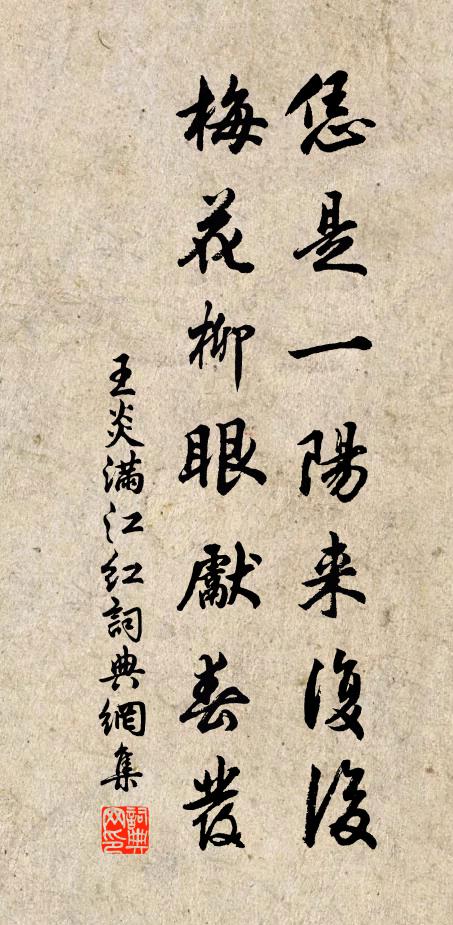 恁是一陽来復後
梅花柳眼獻春發
王炎滿江紅詞典網集
詞典
网印